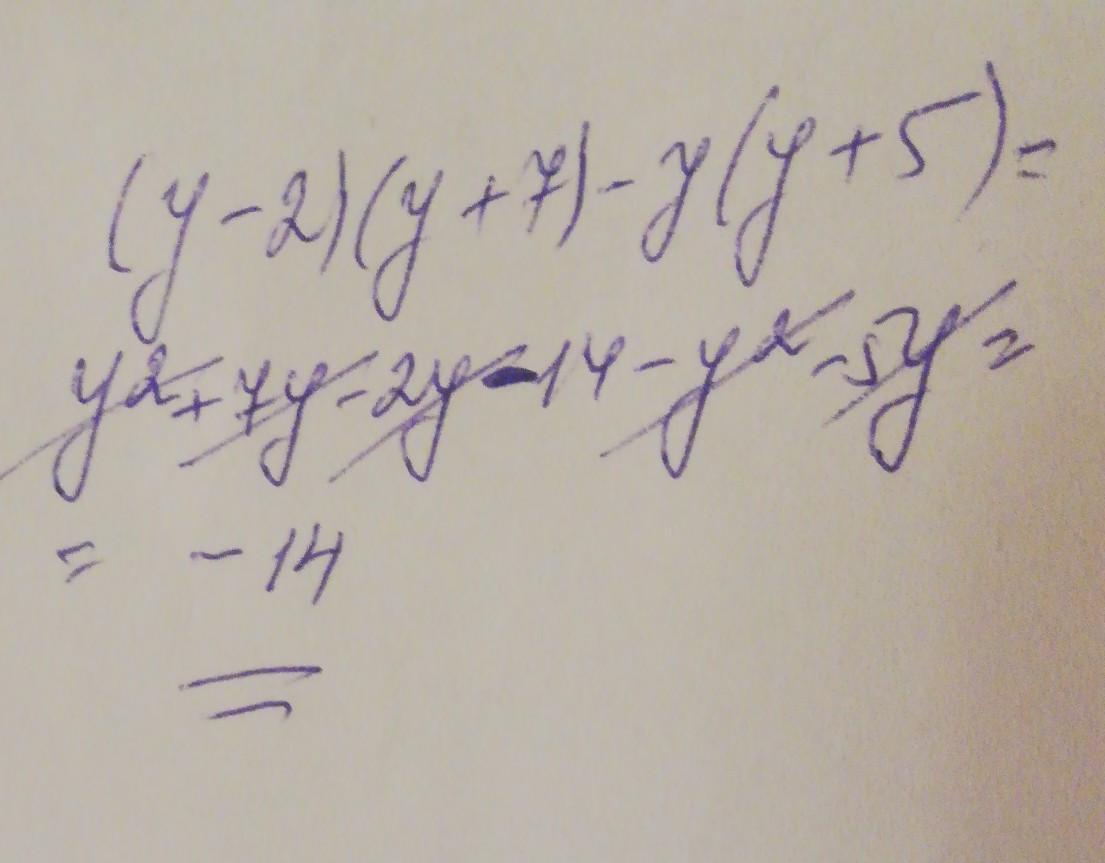 (y-2)(y+7)-y(y+5)=
y²+7y-2y-14-y²-5y=
= -14